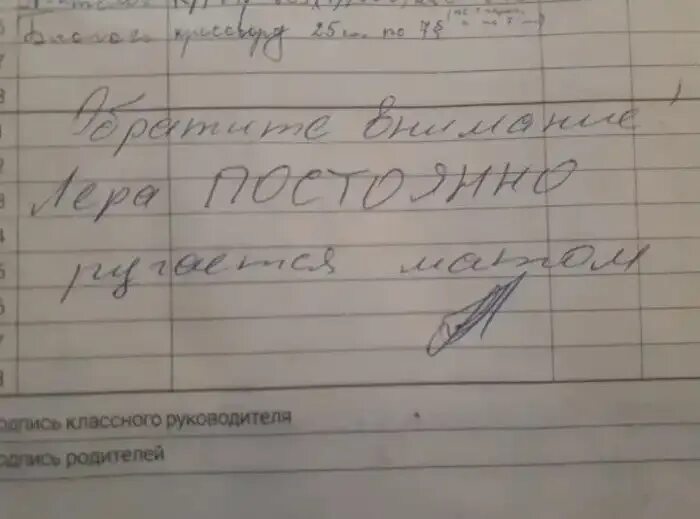 кроссворд 25 по 7§
Обратите внимание!
Лера ПОСТОЯННО
ругается матом
одпись классного руководителя
одпись родителей